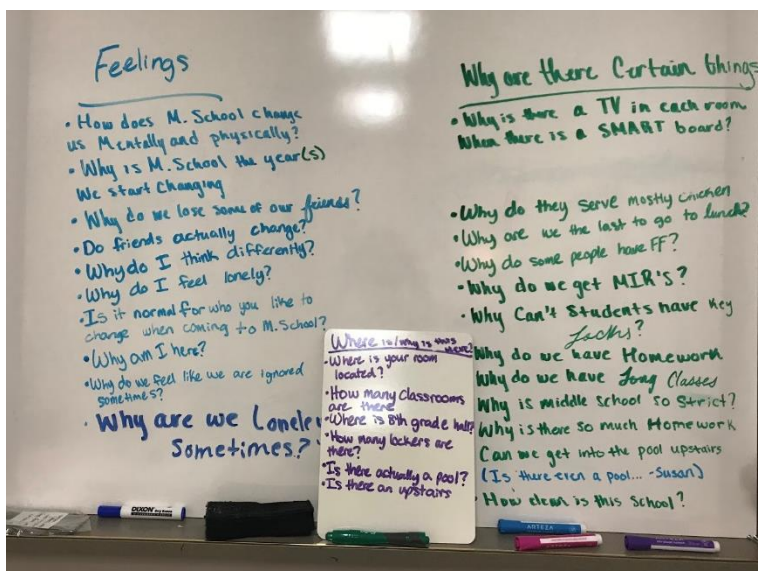 Feelings
• How does M. School change
us Mentally and physically?
• Why is M. School the year(s)
We start Changing
• Why do we lose some of our friends?
• Do friends actually change?
• Why do I think differently?
• Why do I feel lonely?
• Is it normal for who you like to
change when coming to M. School?
• Why am I here?
• Why do we feel like we are ignored
sometimes?
• Why are we Loneley
Sometimes?
Where is/why is this
there?
• Where is your room
located?
• How many classrooms
are there
• Where is 8th grade hall?
• How many lockers are
there?
• Is there actually a pool?
• Is there an upstairs
Why are there Certain things
• Why is there a TV in each room
When there is a SMART board?
• Why do they serve mostly chicken
• Why are we the last to go to lunch?
• Why do some people have FF?
• Why do we get MIR's?
• Why Can't Students have Key
Locks?
Why do we have Homework
Why do we have Long Classes
Why is middle school so Strict?
Why is there so much Homework
Can we get into the pool upstairs
(Is there even a pool... -Susan)
• How clean is this School?
DIXON
ARTEZA